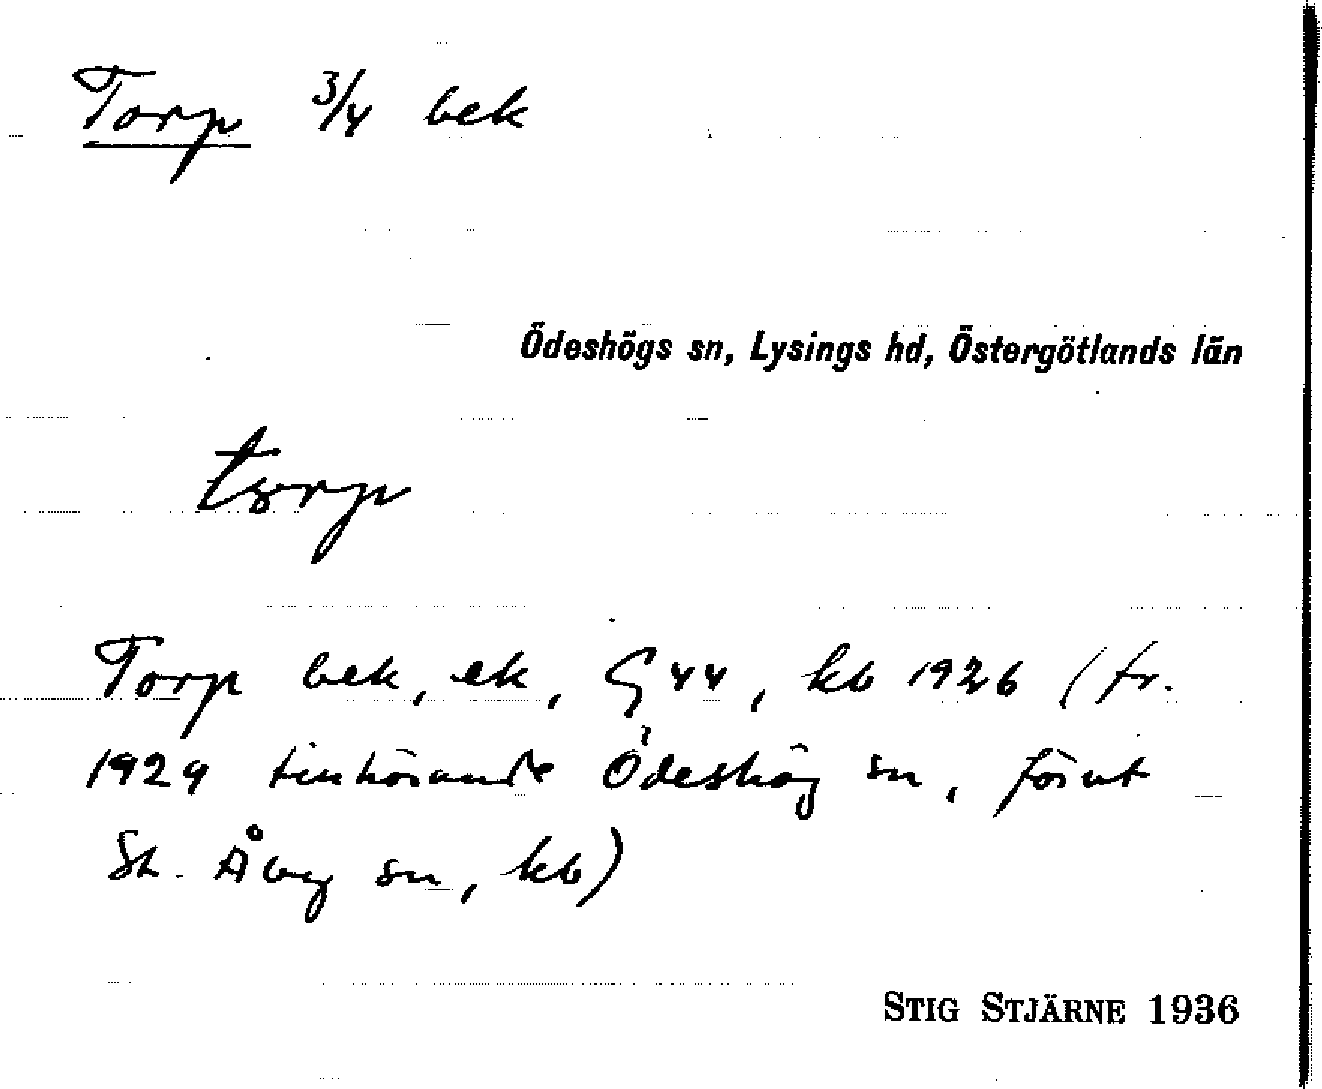 Torp 3/4 bek
Ödeshögs sn, Lysings hd, Östergötlands län
torp
Torp bek, ek, G 44, kb 1926 (fr.
1929 tillhörande Ödeshög sn, förut
St. Åby sn, kb)
STIG STJÄRNE 1936